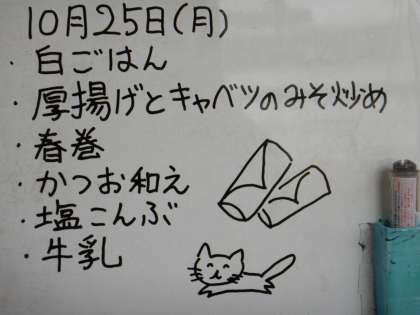 10月25日(月)
・白ごはん
・厚揚げとキャベツのみそ炒め
・春巻
・かつお和え
・塩こんぶ
・牛乳